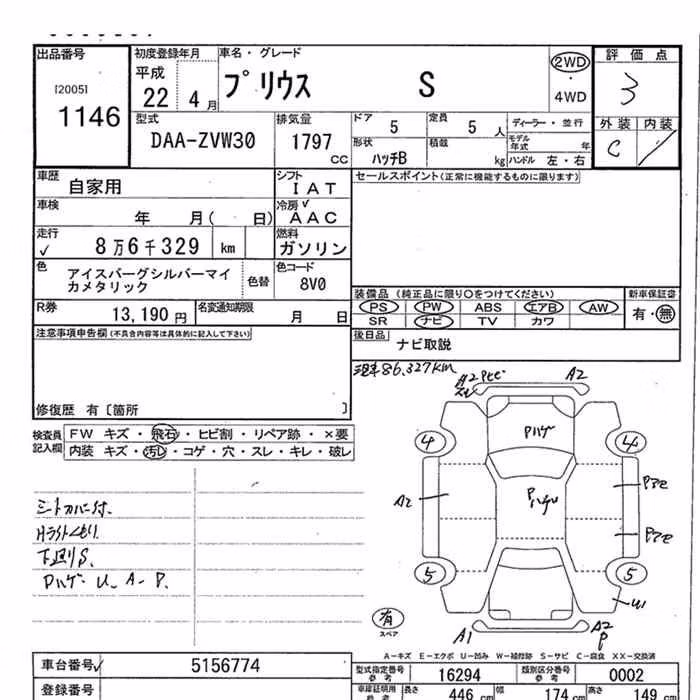 出品番号
[2005]
1146
初度登録年月
平成
22 4 月
車名・グレード
プリウス S
2WD
・
4WD
評価点
3
外装 内装
C
型式
DAA-ZVW30
排気量
1797
cc
ドア
5
定員
5 人
ディーラー・並行
モデル年式 年
形状
ハッチB
積載
kg
ハンドル 左・右
車歴
自家用
シフト
IAT
セールスポイント(正常に機能するものに限ります)
車検
年 月( 日)
冷房 ✓
AAC
走行
✓ 8万6千329 km
燃料
ガソリン
色
アイスバーグシルバーマイ
カメタリック
色替
色コード
8V0
装備品 (純正品に限り○をつけてください)
PS PW ABS エアB AW
SR ナビ TV カワ
新車保証書
有・無
R券
13,190 円
名変通知期限
月 日
後日品
ナビ取説
注意事項申告欄(不具合内容等は具体的に記入して下さい)
修復歴 有〔箇所 〕
現車86,327km
検査員
記入欄
FW キズ・飛石・ヒビ割・リペア跡・×要
内装 キズ・汚レ・コゲ・穴・スレ・キレ・破レ
A2
A2
Pハゲ
4
4
A2
Pアセ
Pアセ
5
5
U1
A1
A2
P
シートカバー付.
Hライトくもり.
下廻りS.
Pハゲ U. A- P.
有
スペア
A-キズ E-エクボ U-凹ミ W-補修跡 S-サビ C-腐食 XX-交換済
車台番号 ✓
5156774
登録番号
型式指定番号
参考
16294
類別区分番号
参考
0002
車庫証明用
参考
長さ
446 cm
幅
174 cm
高さ
149 cm